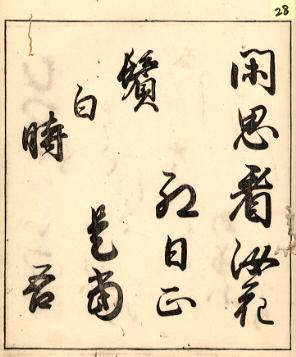 28
閑思看汝花
紅日正
是當
吾
鬢
白
時